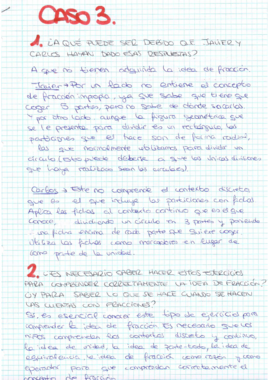 CASO 3.
1. ¿A QUÉ PUEDE SER DEBIDO QUE JAVIER Y
CARLOS HAYAN DADO ESAS RESPUESTAS?
A que no tienen adquirida la idea de fracción
Javier → Por un lado no entiende el concepto
de fracción impropia, ya que sabe que tiene que
coger 5 partes, pero no sabe de donde sacarlas
Y por otro lado aunque la figura geométrica que
se le presenta para dividir es un rectángulo las
particiones que él hace son de forma radial,
las que normalmente utilizamos para dividir un
círculo (esto puede deberse a que las únicas divisiones
que haya realizado sean las circulares)
Carlos → Este no comprende el contexto discreto
que es el que incluye las particiones con fichas
Aplica las fichas al contexto continuo que es el que
conoce, dividiendo un círculo en 3 partes y poniendo
una ficha encima de cada parte que quiere coger
Utiliza las fichas como marcadores en lugar de
como parte de la unidad.
2. ¿ES NECESARIO SABER HACER ESTOS EJERCICIOS
PARA COMPRENDER CORRECTAMENTE LA IDEA DE FRACCIÓN?
¿Y PARA SABER LO QUE SE HACE CUANDO SE HACEN
LAS CUENTAS CON FRACCIONES?
Sí, es esencial conocer este tipo de ejercicios para
comprender la idea de fracción. Es necesario que los
niños comprendan los contextos discreto y continuo,
la idea de unidad, la idea de parte-todo, la idea de
equivalencia, la idea de fracción como razón y como
operador para que comprendan correctamente el
concepto de fracción